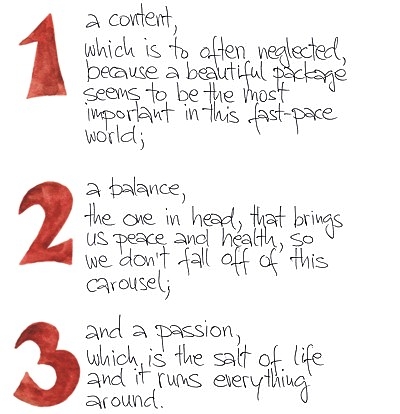 1
a content,
which is to often neglected,
because a beautiful package
seems to be the most
important in this fast-pace
world;
2
a balance,
the one in head, that brings
us peace and health, so
we don't fall off of this
carousel;
3
and a passion,
which, is the salt of life
and it runs everything
around.